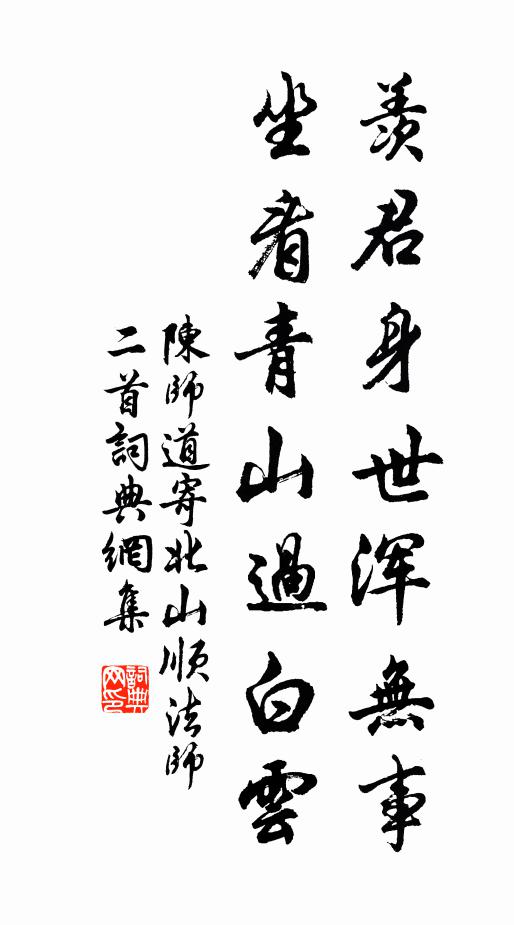 羨君身世浑無事
坐看青山過白雲
陳師道寄北山順法師
二首詞典網集
詞典
网印